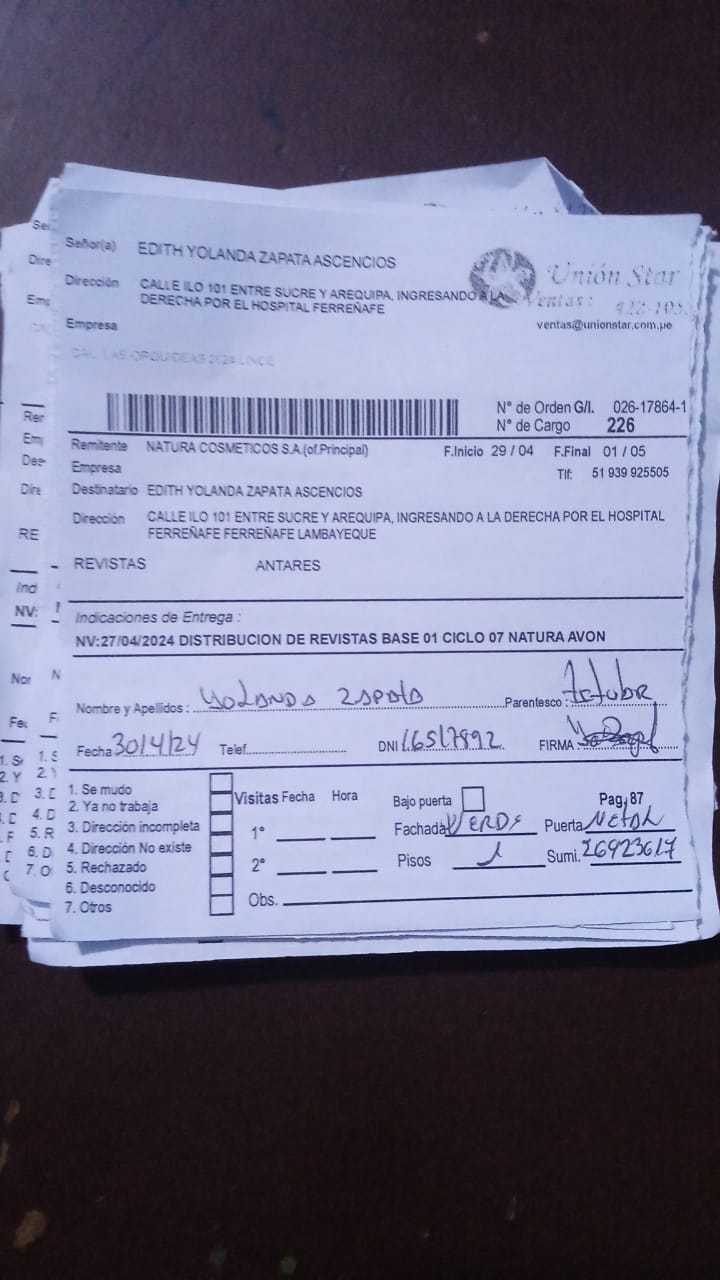 Señor(a) EDITH YOLANDA ZAPATA ASCENCIOS
Dirección CALLE ILO 101 ENTRE SUCRE Y AREQUIPA, INGRESANDO A LA
DERECHA POR EL HOSPITAL FERREÑAFE
Empresa
Unión Star
Ventas:
ventas@unionstar.com.pe
CAL. LAS ORQUIDEAS 2624 LINCE
N° de Orden G/I. 026-17864-1
N° de Cargo 226
Remitente NATURA COSMETICOS S.A.(of.Principal) F.Inicio 29 / 04 F.Final 01 / 05
Empresa Tlf: 51 939 925505
Destinatario EDITH YOLANDA ZAPATA ASCENCIOS
Dirección CALLE ILO 101 ENTRE SUCRE Y AREQUIPA, INGRESANDO A LA DERECHA POR EL HOSPITAL
FERREÑAFE FERREÑAFE LAMBAYEQUE
REVISTAS ANTARES
Indicaciones de Entrega :
NV:27/04/2024 DISTRIBUCION DE REVISTAS BASE 01 CICLO 07 NATURA AVON
Nombre y Apellidos : YOLANDA ZAPATA Parentesco : Titular
Fecha 30/4/24 Telef. DNI 16517892 FIRMA
1. Se mudo
2. Ya no trabaja
3. Dirección incompleta
4. Dirección No existe
5. Rechazado
6. Desconocido
7. Otros
Visitas Fecha Hora
1°
2°
Obs.
Bajo puerta Pag, 87
Fachada VERDE Puerta METAL
Pisos 1 Sumi. 26923617